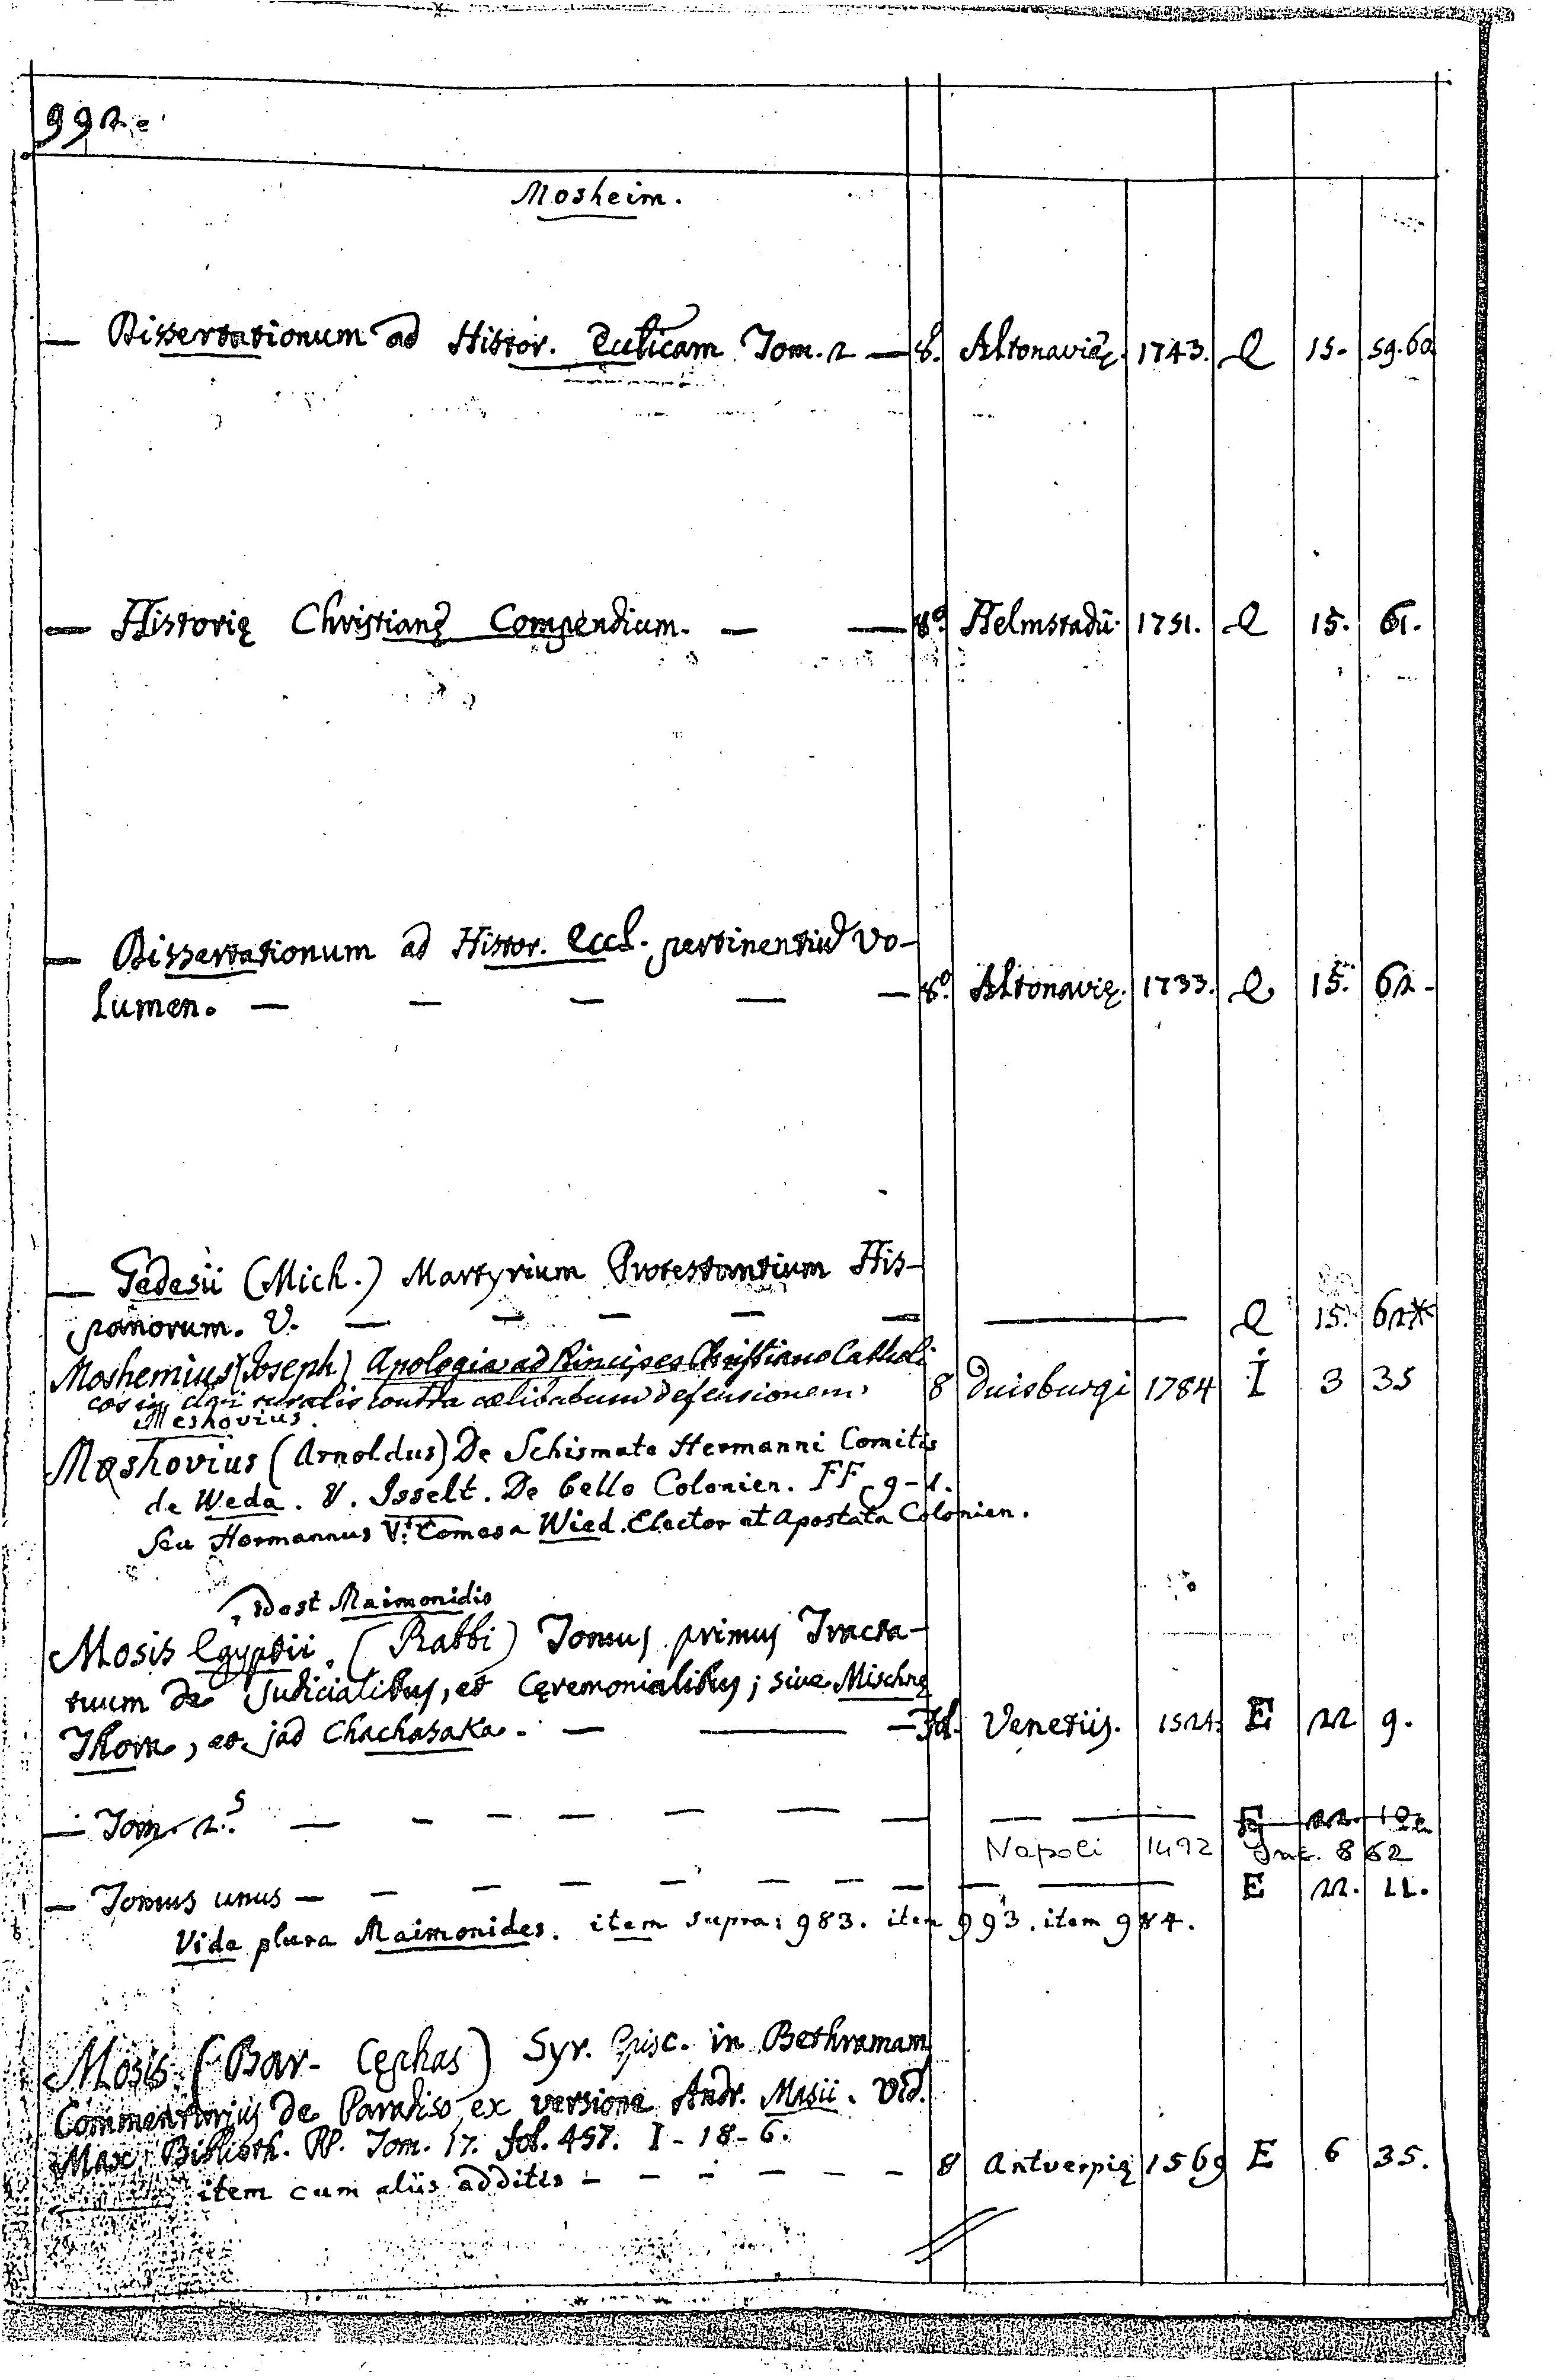 992.
Mosheim.
— Dissertationum ad Histor. Eccl[...]icam Tom. 2 — 8. Altonavię. 1743. Q 15. 59.60
— Historię Christianę Compendium. — — 8º Helmstadii. 1751. Q 15. 61.
— Dissertationum ad Histor. Eccl. pertinentiũ Vo-
lumen. — — — — — 8º. Altonavię. 1733. Q 15. 62.
— Gedesii (Mich.) Martyrium Protestantium His-
panorum. V. — — — — — — Q 15. 62*
Moshemius (Joseph) Apologia ad Principes Christiano Catholi
cos in cleri ruralis contra cælibatum defensionem. 8 Duisburgi 1784 I 3 35
Meshovius.
Meshovius (Arnoldus) De Schismate Hermanni Comitis
de Weda. V. Isselt. De bello Colonien. FF-9-1.
seu Hermannus V. Comes a Wied. Elector et Apostata Colonien.
idest Maimonidis
Mosis Egyptii, (Rabbi) Tomus primus Tracta-
tuum de Judicialibus, et Cęremonialibus; sive Mischnę
Thora, et jad Chachasaka. — — — Fol. Venetiis. 1524. E 22 9.
— Tom. 2.s — — — — — — — — — E 22. 10.
Napoli 1492 Inc. 862
— Tomus unus — — — — — — — — — — E 22. 11.
Vide plura Maimonides. item supra: 983. item 993. item 984.
Mosis (Bar-Cęphas) Syr. Episc. in Bethraman
Commentarius de Paradiso ex versione Andr. Masii. Vid.
Max. Biblioth. PP. Tom. 17. fol. 457. I-18-6.
item cum aliis additis — — — — — — 8 Antverpię 1569 E 6 35.